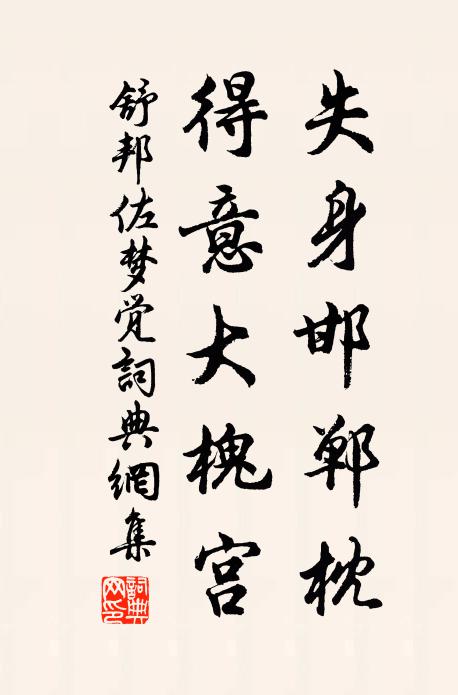 失身邯郸枕
得意大槐宫
舒邦佐梦觉詞典網集
詞典網印